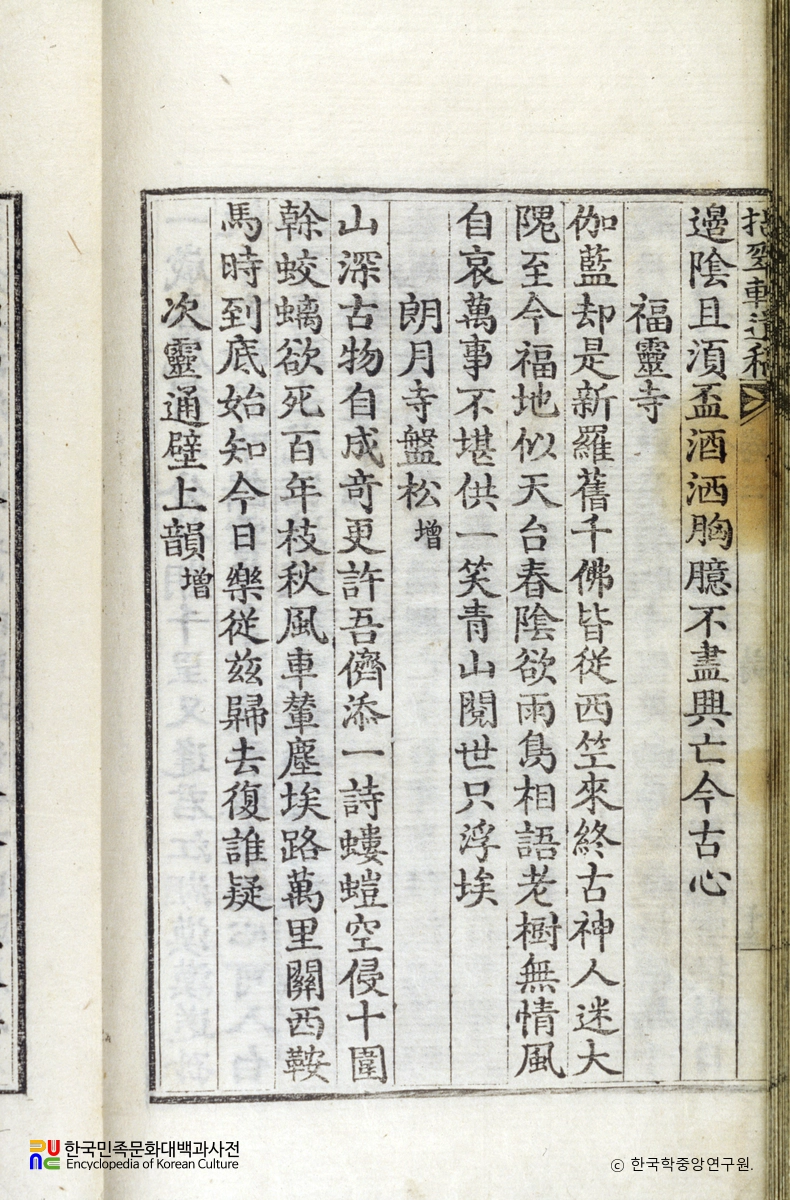 挹翠軒遺稿
邊陰且湏盃酒洒胸臆不盡興亡今古心
福靈寺
伽藍却是新羅舊千佛皆從西竺來終古神人迷大
隗至今福地似天台春陰欲雨鳥相語老樹無情風
自哀萬事不堪供一笑青山閱世只浮埃
朗月寺盤松增
山深古物自成奇更許吾儕添一詩螻螘空侵十圍
榦蛟螭欲死百年枝秋風車輦塵埃路萬里關西鞍
馬時到底始知今日樂從玆歸去復誰疑
次靈通壁上韻增
한국민족문화대백과사전
Encyclopedia of Korean Culture
ⓒ 한국학중앙연구원.